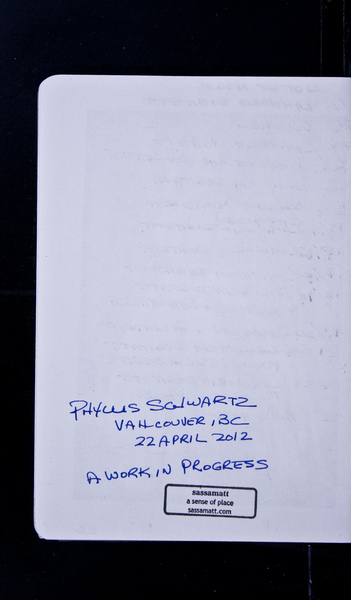 PHYLLIS SCHWARTZ
VANCOUVER, BC
22 APRIL 2012
A WORK IN PROGRESS
sassamatt
a sense of place
sassamatt.com